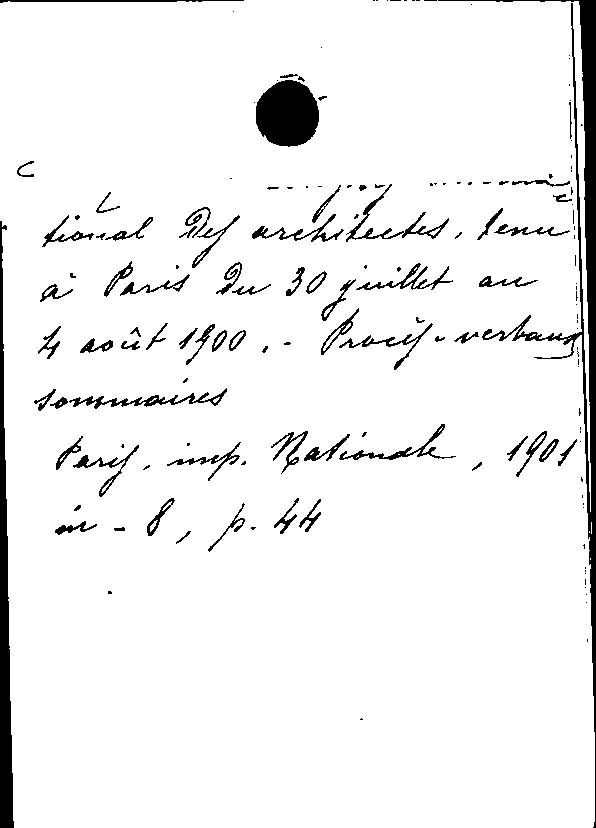 tional des architectes, tenu
à Paris du 30 juillet au
4 août 1900. - Procès-verbaux
sommaires
Paris, imp. Nationale, 1901
in-8, p. 44